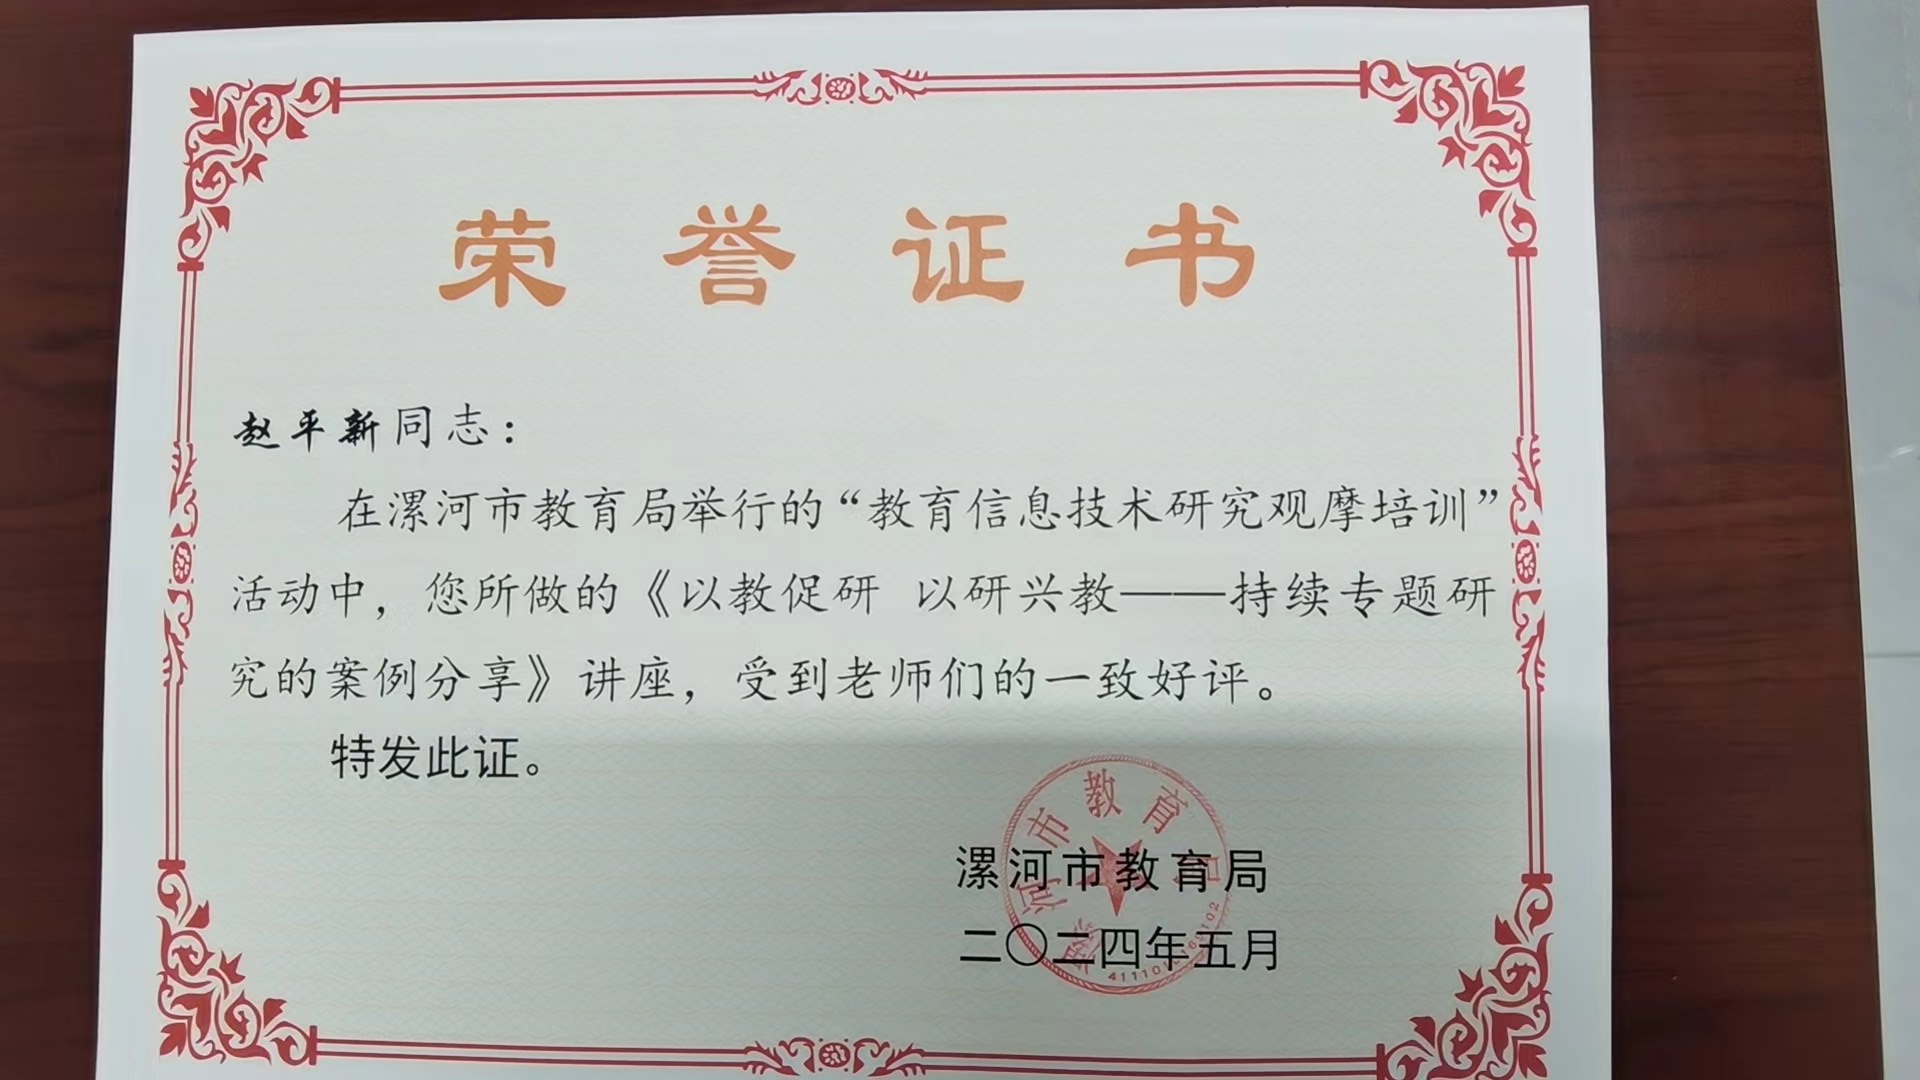 荣誉证书
赵平新同志：
在漯河市教育局举行的“教育信息技术研究观摩培训”
活动中，您所做的《以教促研 以研兴教——持续专题研
究的案例分享》讲座，受到老师们的一致好评。
特发此证。
漯河市教育局
漯河市教育局
二〇二四年五月